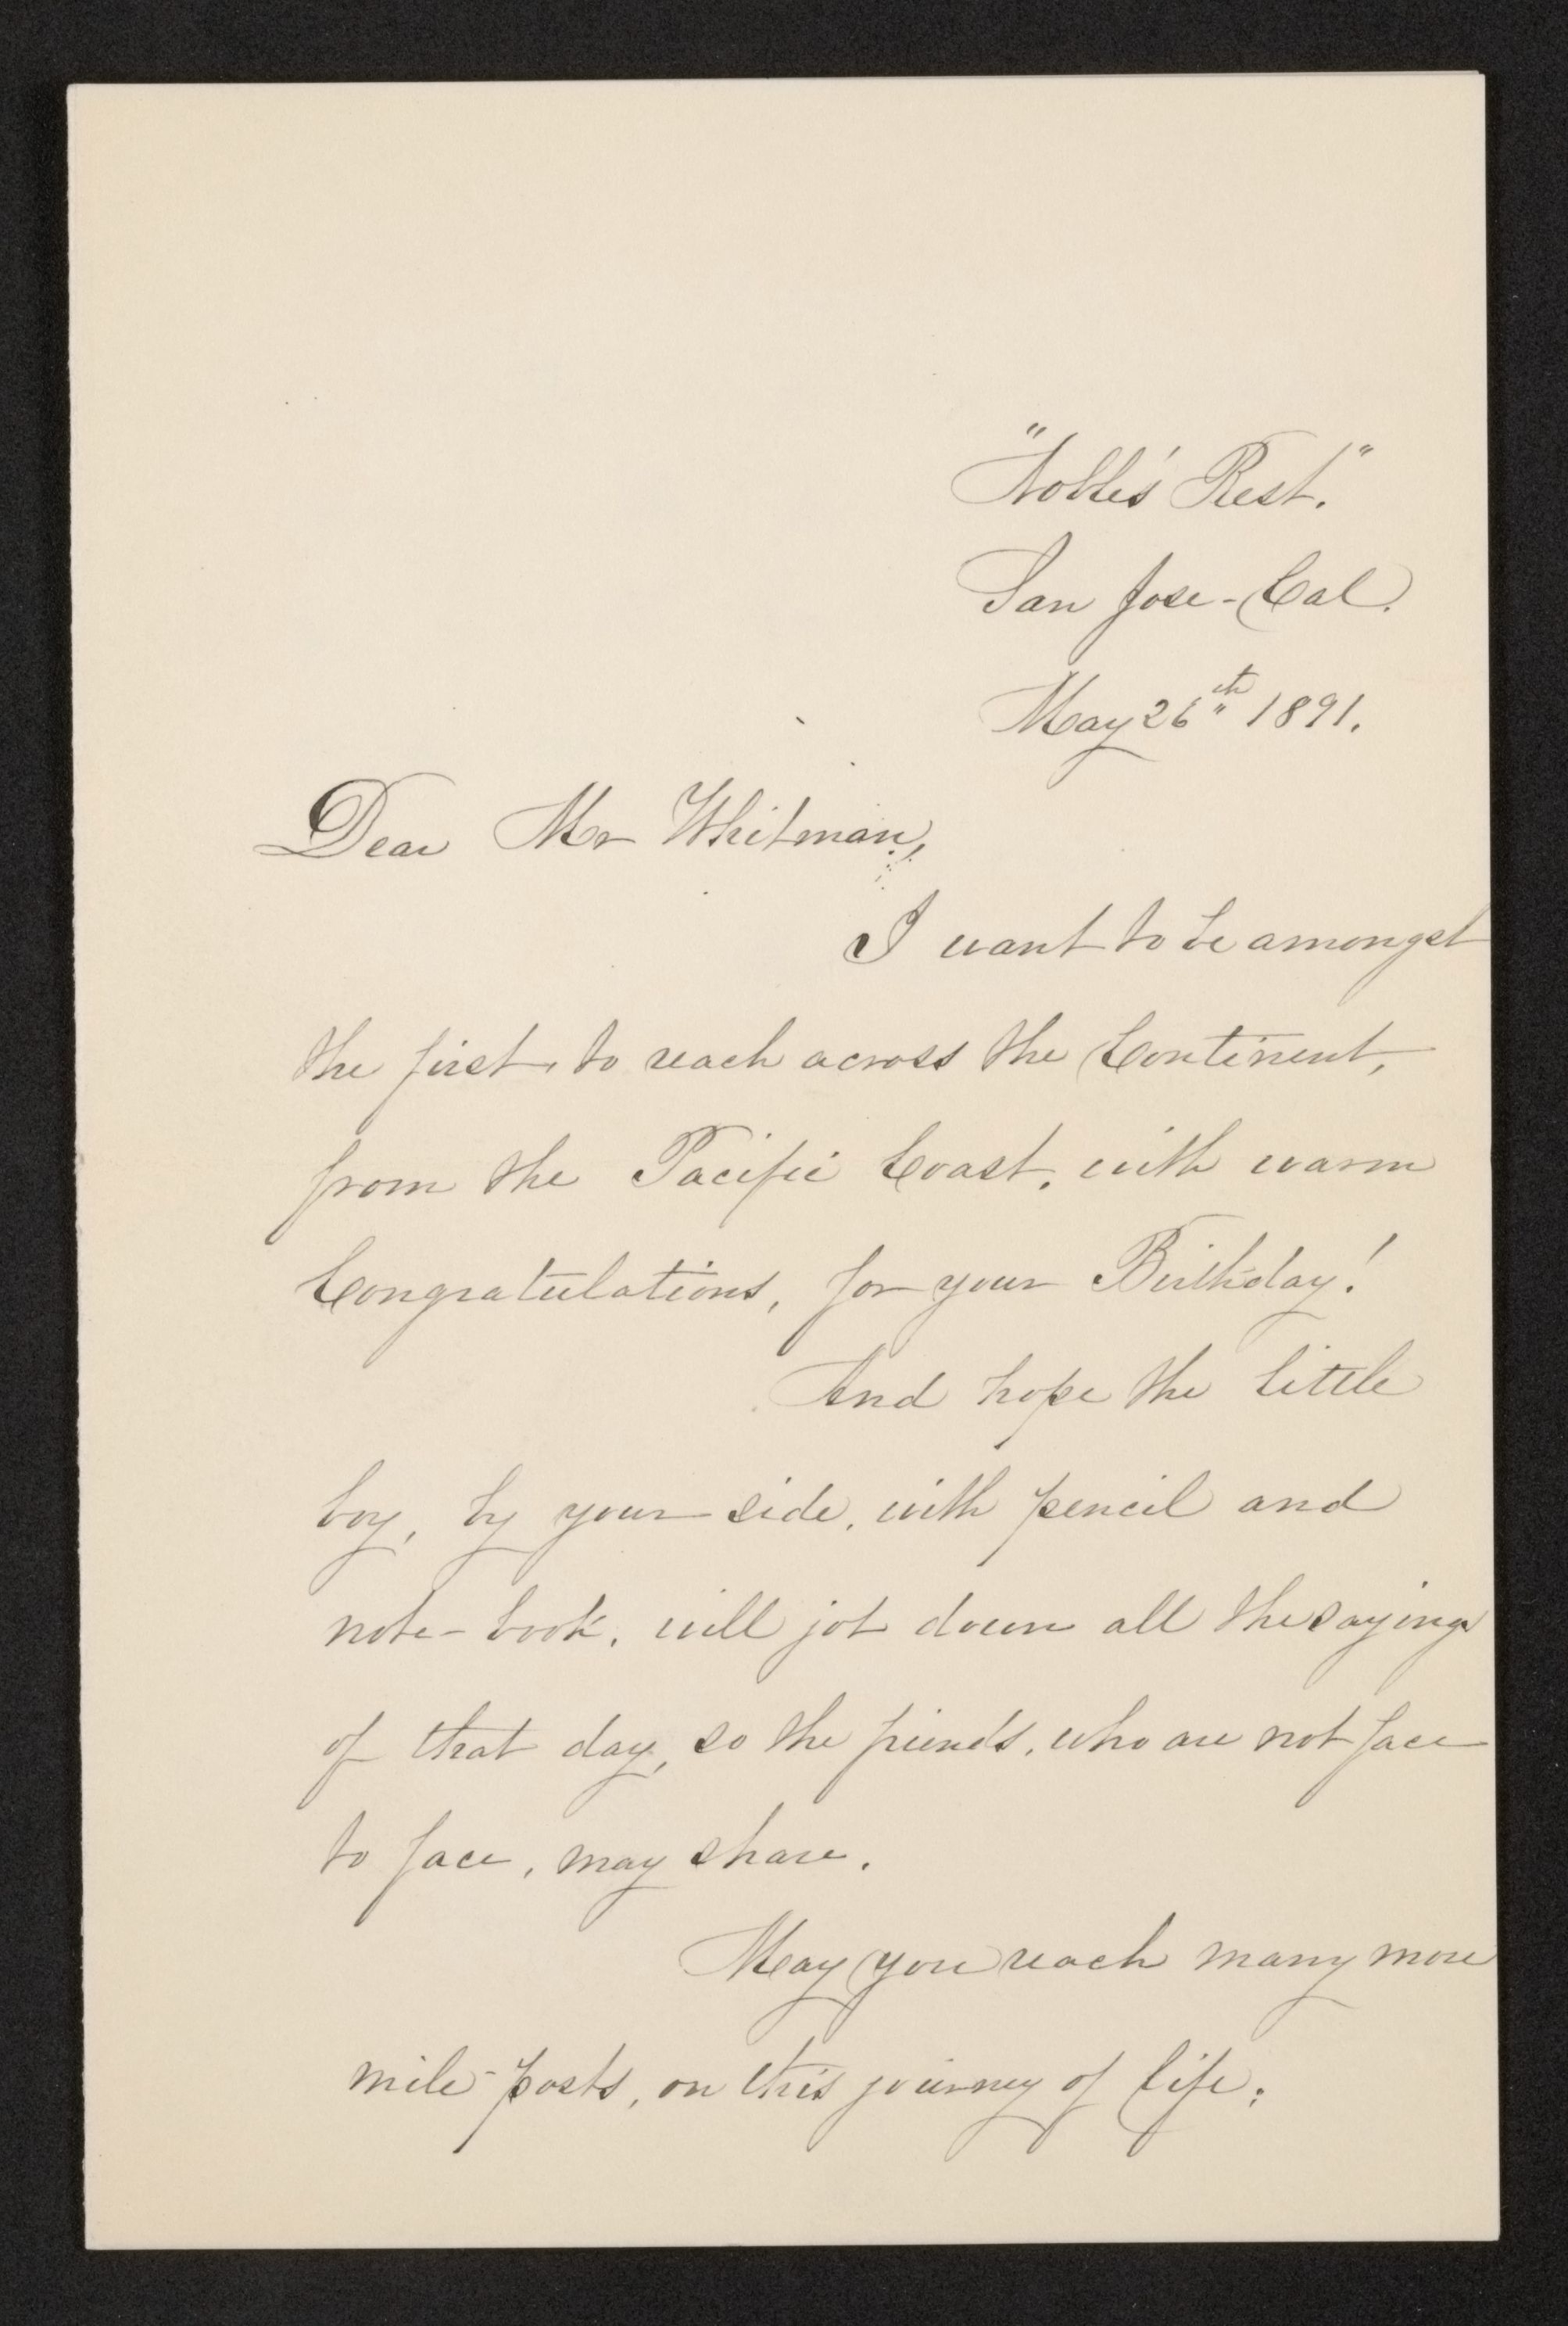 "Noble's Rest."
San Jose - Cal.
May 26th 1891.
Dear Mr Whitman,
I want to be amongst
the first, to reach across the Continent,
from the Pacific Coast, with warm
Congratulations, for your Birthday!
And hope the little
boy, by your side, with pencil and
note-book, will jot down all the sayings
of that day, so the friends, who are not face
to face, may share.
May you reach many more
mile-posts, on this journey of life;